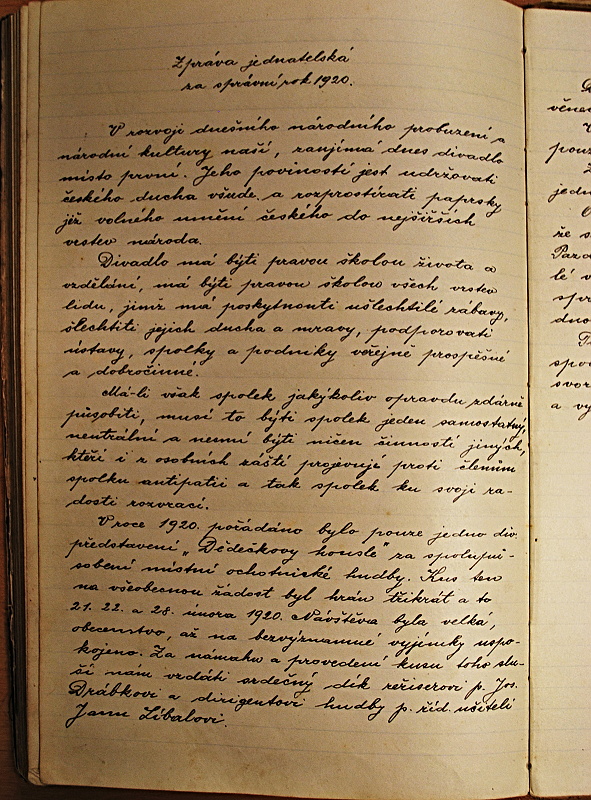 Zpráva jednatelská
za správní rok 1920.
V rozvoji dnešního národního probuzení a
národní kultury naší, zaujímá dnes divadlo
místo první. Jeho povinností jest udržovati
českého ducha všude a rozprostírati paprsky
jež volného umění českého do nejširších
vrstev národa.
Divadlo má býti pravou školou života a
vzdělání, má býti pravou školou všech vrstev
lidu, jimž má poskytnouti ušlechtilé zábavy,
šlechtiti jejich ducha a mravy, podporovati
ústavy, spolky a podniky veřejně prospěšné
a dobročinné.
Má-li však spolek jakýkoliv opravdu zdárně
působiti, musí to býti spolek jeden samostatný,
neutrální a nesmí býti ničen činností jiných,
kteří i z osobních záští projevují proti členům
spolku antipatii a tak spolek ku svoji ra-
dosti rozvrací.
V roce 1920. pořádáno bylo pouze jedno div.
představení „Dědečkovy housle" za spolupů-
sobení místní ochotnické hudby. Kus ten
na všeobecnou žádost byl hrán třikrát a to
21. 22. a 28. února 1920. Návštěva byla velká,
obecenstvo, až na bezvýznamné vyjímky uspo-
kojeno. Za námahu a provedení kusu toho slu-
ší nám vzdáti srdečný dík režiserovi p. Jos.
Drábkovi a dirigentovi hudby p. říd. učiteli
Janu Líbalovi.
věnem
jedn
že s
lé v
spr
spo
svor
a vy